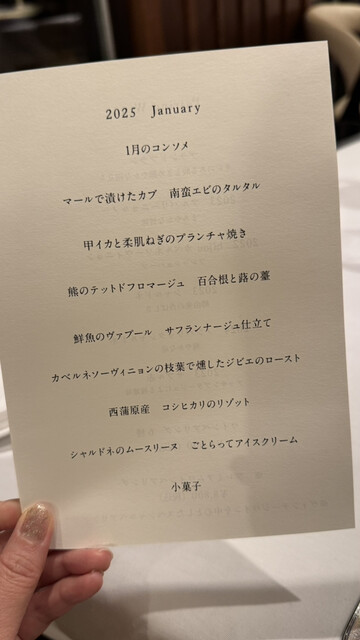 2025 January
1月のコンソメ
マールで漬けたカブ 南蛮エビのタルタル
甲イカと柔肌ねぎのプランチャ焼き
熊のテットドフロマージュ 百合根と蕗の薹
鮮魚のヴァプール サフランナージュ仕立て
カベルネソーヴィニョンの枝葉で燻したジビエのロースト
西蒲原産 コシヒカリのリゾット
シャルドネのムースリーヌ ごとらってアイスクリーム
小菓子